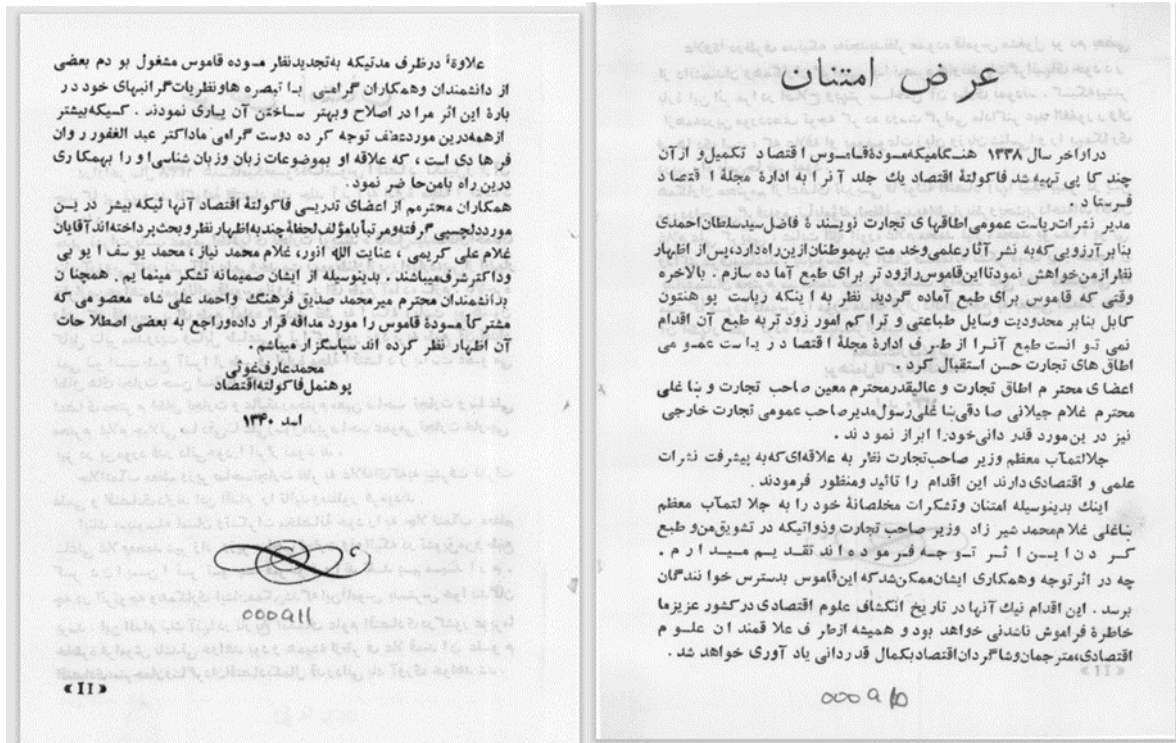 عرض امتنان
دراواخر سال ۱۳۳۸ هنگامیکه مسودۀ قاموس اقتصاد تکمیل و از آن
چند کاپی تهیه شد فاکولتۀ اقتصاد یك جلد آنرا به ادارۀ مجلۀ اقتصاد
فرستاد .
مدیر نشرات ریاست عمومی اطاقهای تجارت نویسندۀ فاضل سید سلطان احمدی
بنا بر آرزویی که به نشر آثار علمی و خدمت به هموطنان ازین راه دارد، پس از اظهار
نظر از من خواهش نمود تا این قاموس را زود تر برای طبع آماده سازم . بالاخره
وقتی که قاموس برای طبع آماده گردید نظر به اینکه ریاست پوهنتون
کابل بنابر محدودیت وسایل طباعتی و تراکم امور زود تر به طبع آن اقدام
نمی توانست طبع آنرا از طرف ادارۀ مجلۀ اقتصاد ریاست عمومی
اطاق های تجارت حسن استقبال کرد .
اعضای محترم اطاق تجارت و عالیقدر محترم معین صاحب تجارت و ښاغلی
محترم غلام جیلانی صادقی ښاغلی رسول مدیر صاحب عمومی تجارت خارجی
نیز در ین مورد قدر دانی خود را ابراز نمودند .
جلالتمآب معظم وزیر صاحب تجارت نظر به علاقه ای که به پیشرفت نشرات
علمی و اقتصادی دارند این اقدام را تائید و منظور فرمودند .
اینك بدینوسیله امتنان و تشکرات مخلصانۀ خود را به جلا لتمآب معظم
ښاغلی غلام محمد شیر زاد وزیر صاحب تجارت و ذواتیکه در تشویق من و طبع
کردن این اثر توجه فرموده اند تقدیم میدارم .
چه در اثر توجه و همکاری ایشان ممکن شد که این قاموس بدسترس خوانندگان
برسد . این اقدام نیك آنها در تاریخ انکشاف علوم اقتصادی در کشور عزیز ما
خاطرۀ فراموش ناشدنی خواهد بود و همیشه از طرف علاقمندان علوم
اقتصادی، مترجمان و شاگردان اقتصاد بکمال قدردانی یاد آوری خواهد شد .
علاوۀ در ظرف مدتیکه به تجدید نظر مسوده قاموس مشغول بودم بعضی
از دانشمندان و همکاران گرامی با تبصره ها و نظریات گرانبهای خود در
بارۀ این اثر مرا در اصلاح و بهتر ساختن آن یاری نمودند . کسیکه بیشتر
از همه درین مورد عطف توجه کرده دوست گرامی ما داکتر عبد الغفور روان
فرهادی است ، که علاقه او بموضوعات زبان و زبان شناسی او را بهمکاری
درین راه با من حاضر نمود .
همکاران محترمم از اعضای تدریسی فاکولتۀ اقتصاد آنها ئیکه بیشتر در ین
مورد دلچسپی گرفته و مرتباً با مؤلف لحظۀ چند به اظهار نظر و بحث پرداخته اند آقایان
غلام علی کریمی ، عنایت الله انور، غلام محمد نیاز، محمد یوسف یوبی
و داکتر شرف میباشند . بدینوسیله از ایشان صمیمانه تشکر مینمایم . همچنان
بدانشمندان محترم میر محمد صدیق فرهنگ و احمد علی شاه معصومی که
مشترکاً مسودۀ قاموس را مورد مداقه قرار داده و راجع به بعضی اصطلاحات
آن اظهار نظر کرده اند سپاسگزار میباشم .
محمد عارف غوثی
پوهنمل فاکولته اقتصاد
اسد ۱۳۴۰
000911
« II »